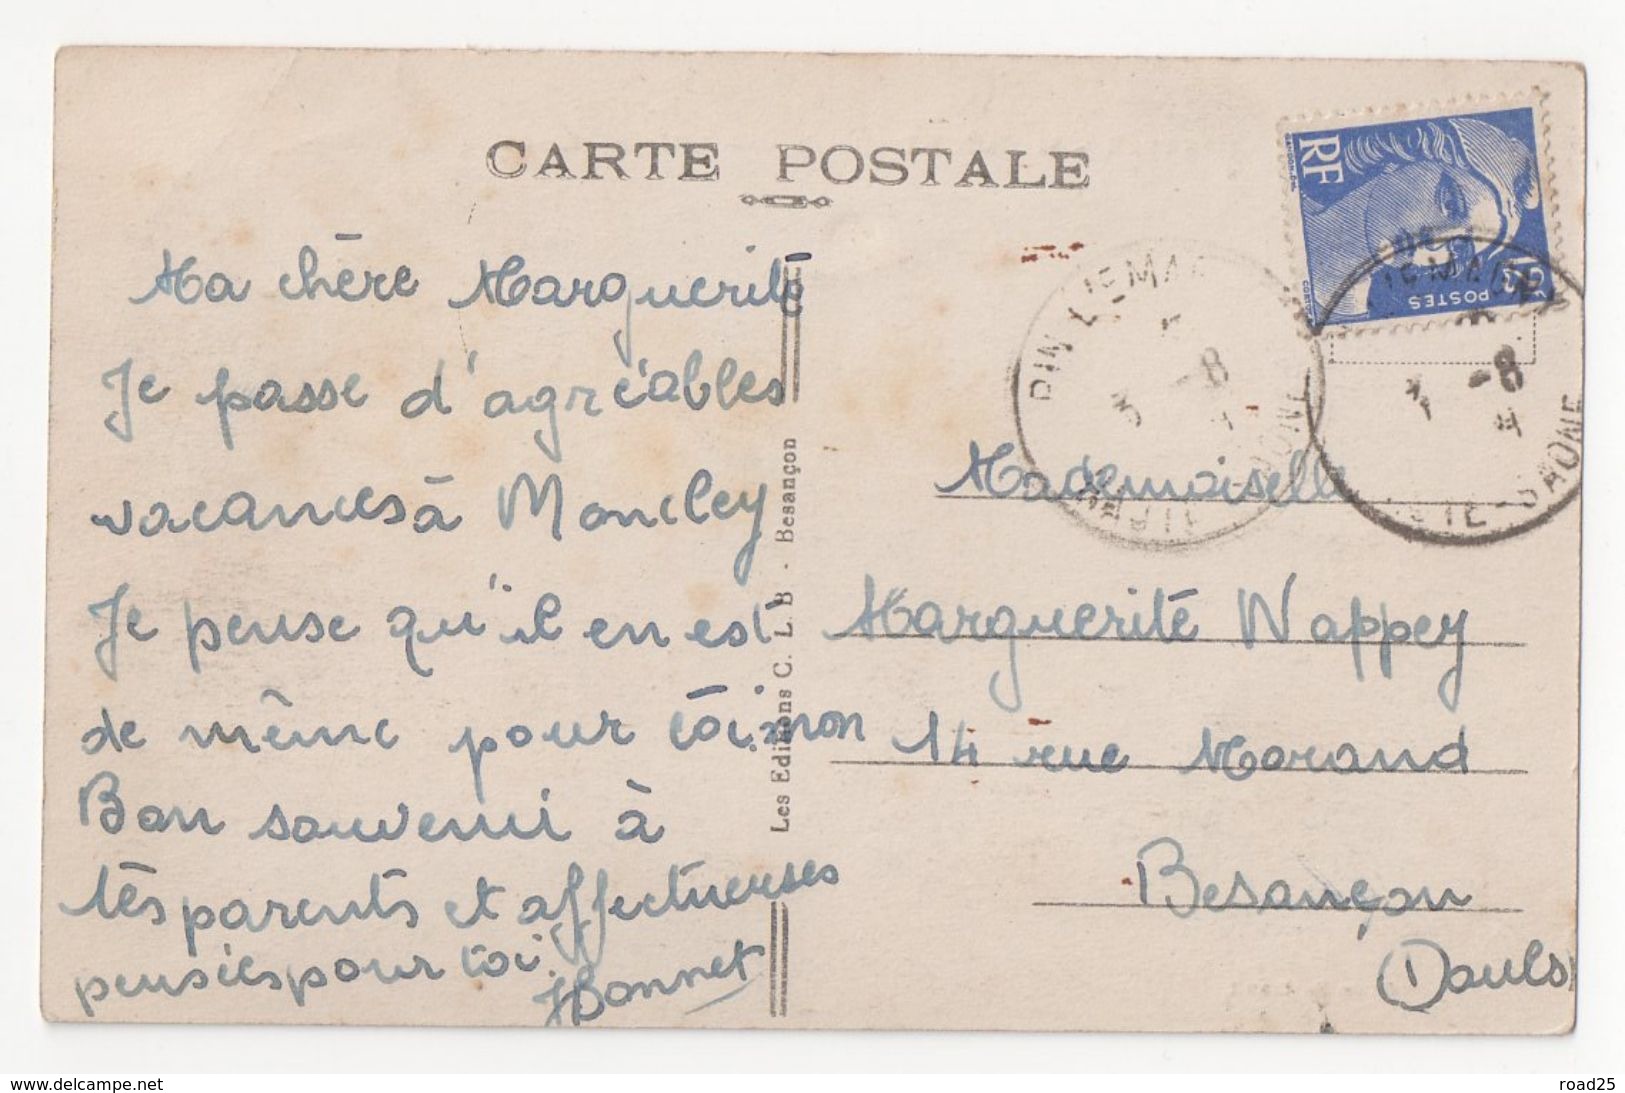 CARTE POSTALE
Ma chère Marguerite
Je passe d'agréables
vacances à Moncley
Je pense qu'il en est
de même pour toi. mon
Bon souvenir à
tes parents et affectueuses
pensées pour toi.
JBonnet
Les Editions C. L. B - Besançon
RF
POSTES
PIN L'EMA
3 -8
HTE-SAONE
3 -8
Mademoiselle
Marguerite Nappey
14 rue Morand
Besançon
(Doubs)
www.delcampe.net
road25